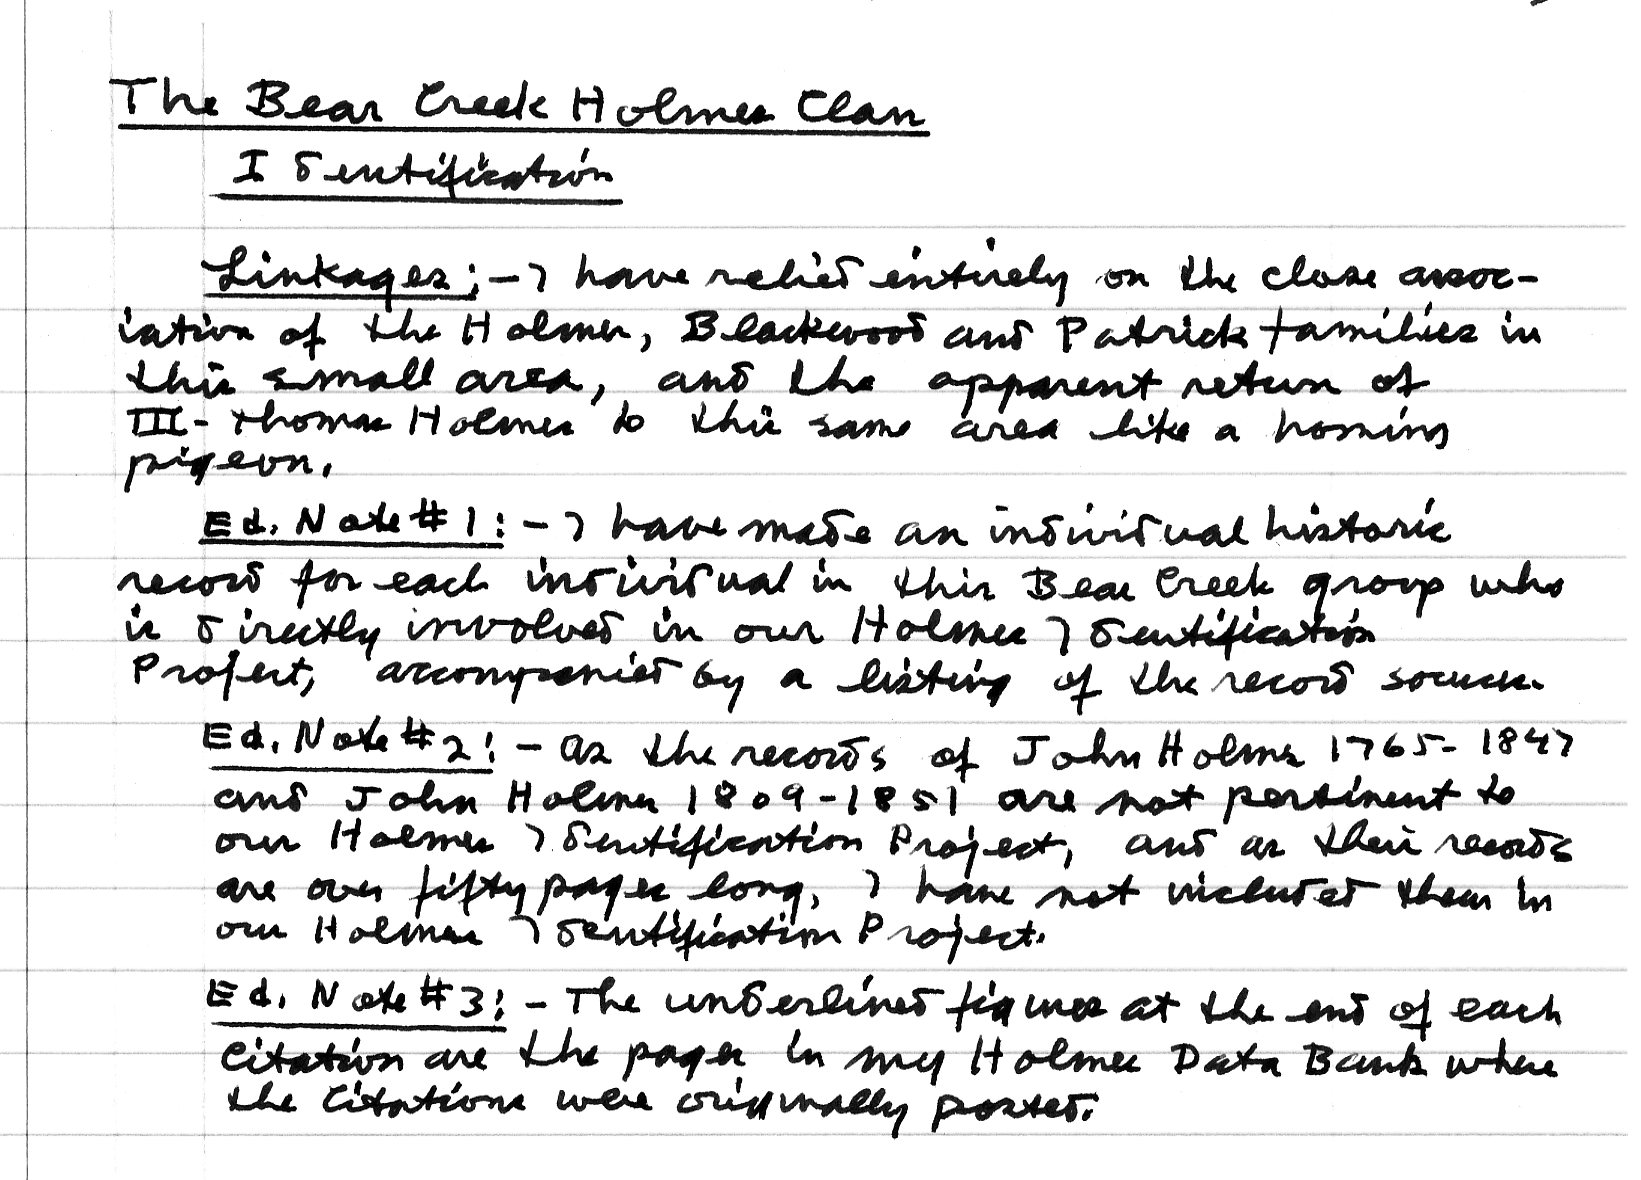 The Bear Creek Holmes Clan
Identification
Linkages:- I have relied entirely on the close assoc-
iation of the Holmes, Blackwood and Patrick families in
this small area, and the apparent return of
III- Thomas Holmes to this same area like a homing
pigeon.
Ed. Note #1:- I have made an individual historic
record for each individual in this Bear Creek group who
is directly involved in our Holmes Identification
Project, accompanied by a listing of the record sources.
Ed. Note #2:- As the records of John Holmes 1765-1847
and John Holmes 1809-1851 are not pertinent to
our Holmes Identification Project, and as their records
are over fifty pages long, I have not included them in
our Holmes Identification Project.
Ed. Note #3:- The underlined figures at the end of each
Citation are the pages in my Holmes Data Bank where
the Citations were originally posted.